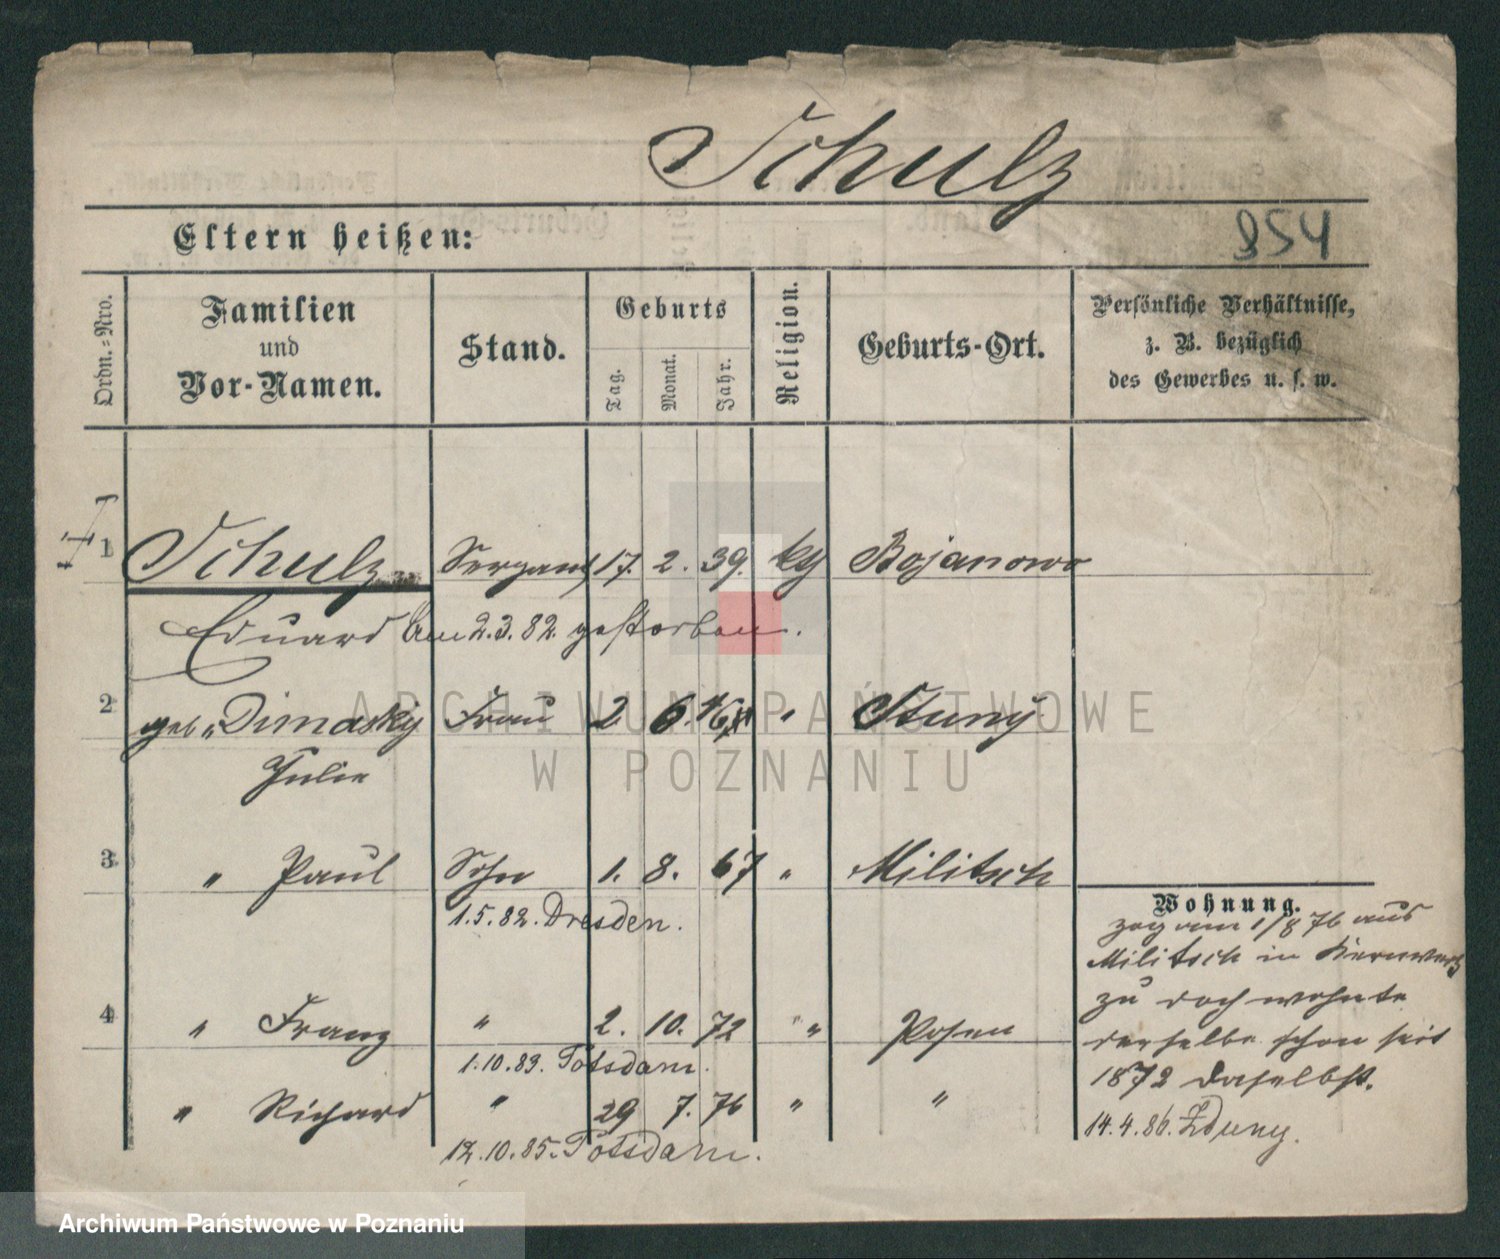 Schulz
Eltern heißen: 854
Ordn.=Nro. Familien und Vor-Namen. Stand. Geburts Tag. Monat. Jahr. Religion. Geburts-Ort. Persönliche Verhältnisse, z. B. bezüglich des Gewerbes u. s. w.
1 Schulz Sergant 17. 2. 39. kth Bojanowo
Eduard Am 2.3.82. gestorben.
2 geb. Dimasky Frau 2 6. 46 "
Julie
3 " Paul Sohn 1. 8. 67 " Militsch
1.5.82. Dresden.
Wohnung.
zog am 1/8 76 aus
Militsch in
zu doch wohnte
derselbe schon seit
1872 daselbst.
14.4.86. Zduny.
4 " Franz " 2. 10. 72 " Posen
1.10.89. Potsdam.
" Richard " 29 7. 76 " "
12.10.85. Potsdam.
ARCHIWUM PAŃSTWOWE
W POZNANIU
Archiwum Państwowe w Poznaniu